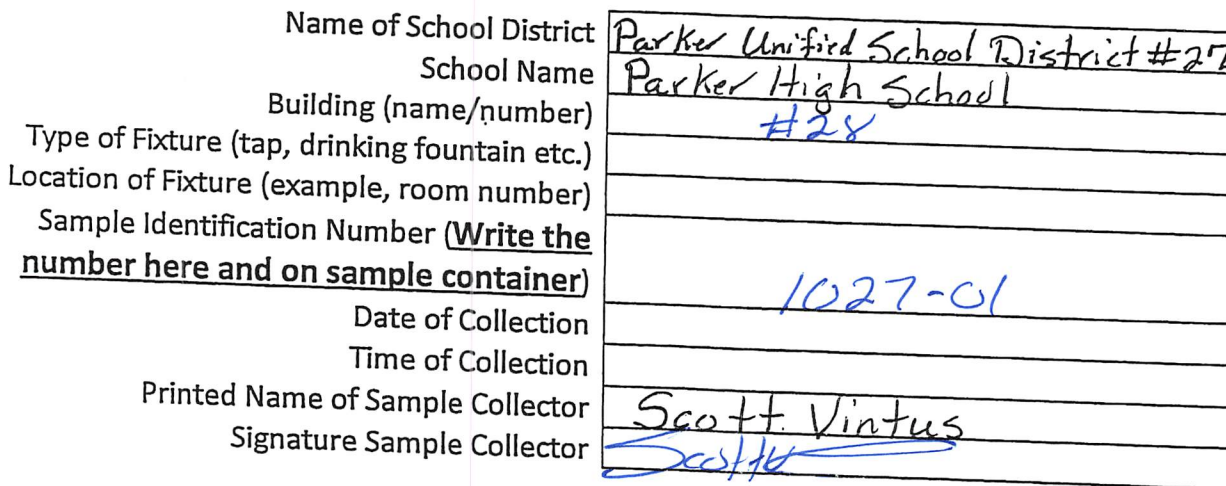 Name of School District Parker Unified School District #27
School Name Parker High School
Building (name/number) #28
Type of Fixture (tap, drinking fountain etc.)
Location of Fixture (example, room number)
Sample Identification Number (Write the
number here and on sample container) 1027-01
Date of Collection
Time of Collection
Printed Name of Sample Collector Scott Vintus
Signature Sample Collector